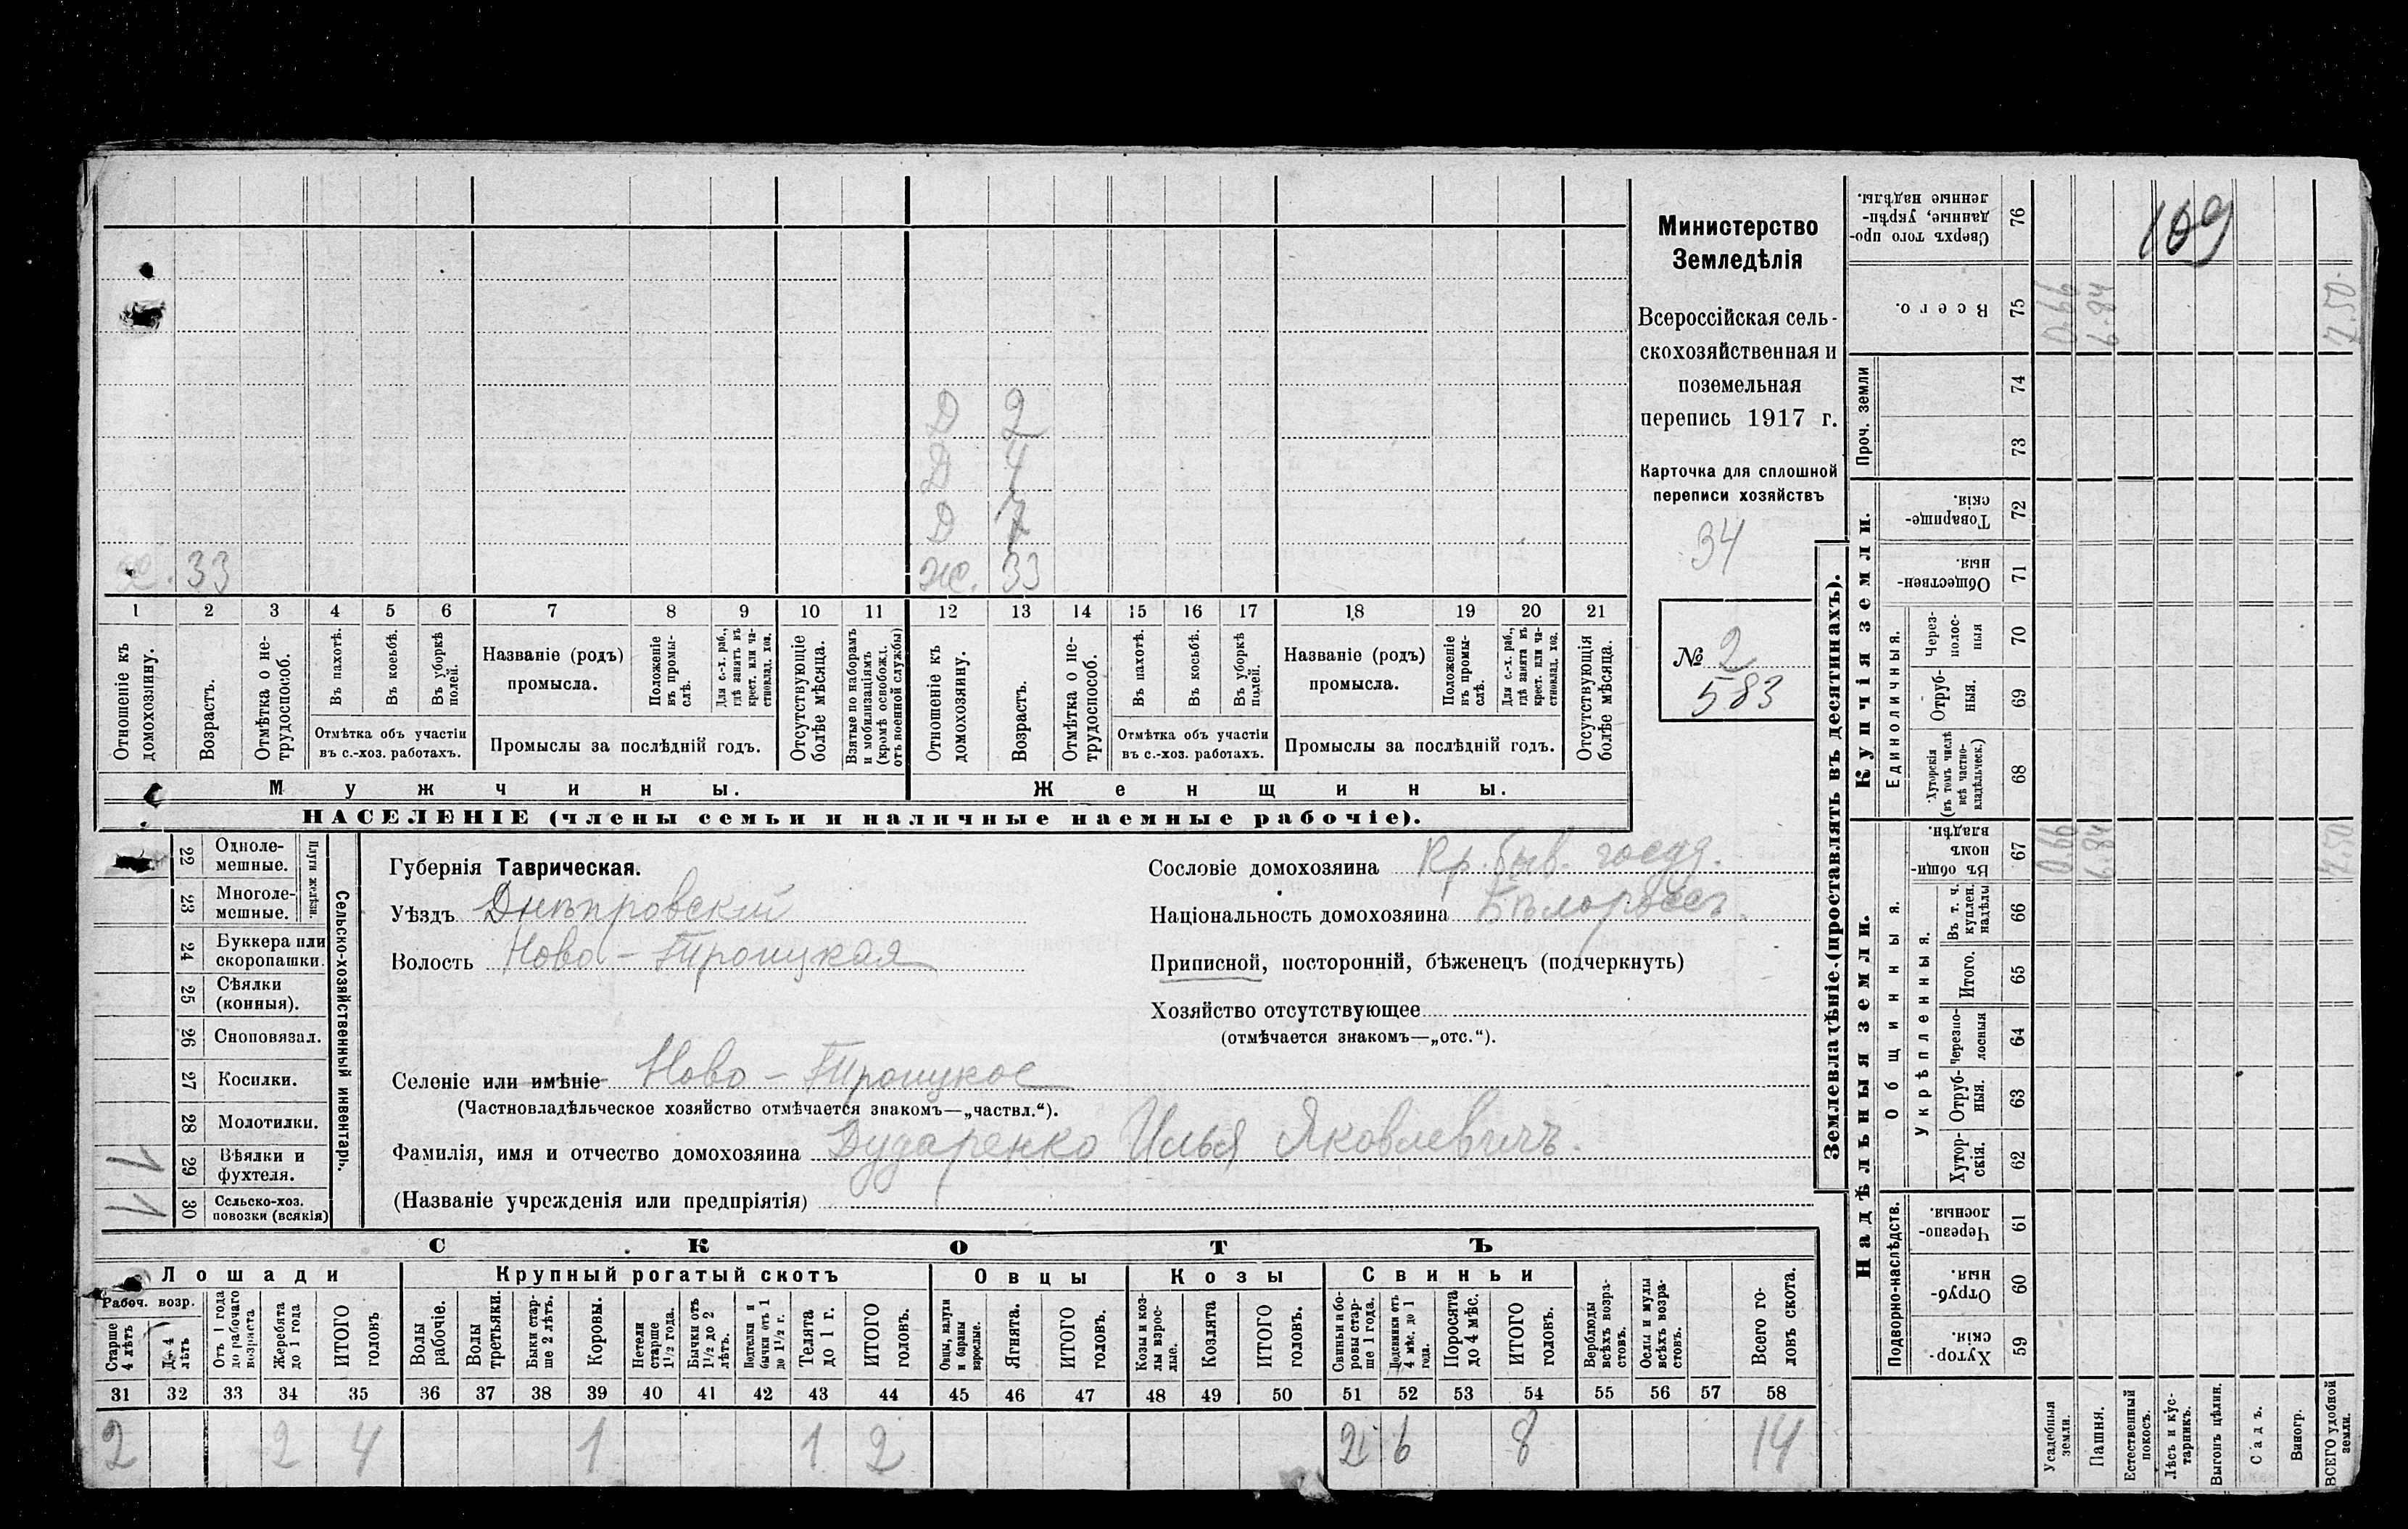 Министерство
Земледѣлія
Всероссійская сель-
скохозяйственная и
поземельная
перепись 1917 г.
Карточка для сплошной
переписи хозяйствъ
34
№ 2
583
109
Д 2
Д 4
Д 7
33 ж. 33
1 2 3 4 5 6 7 8 9 10 11 12 13 14 15 16 17 18 19 20 21
Отношеніе къ домохозяину.
Возрастъ.
Отмѣтка о не-трудоспособ.
Въ пахотѣ.
Въ косьбѣ.
Въ уборкѣ полей.
Отмѣтка объ участіи
въ с.-хоз. работахъ.
Названіе (родъ)
промысла.
Положеніе въ промы-слѣ.
Для с.-х. раб., гдѣ занятъ въ крест. или ча-стновлад. хоз.
Промыслы за послѣдній годъ.
Отсутствующіе болѣе мѣсяца.
Взятые по наборамъ и мобилизаціямъ (кромѣ освобожд. отъ военной службы)
Отношеніе къ домохозяину.
Возрастъ.
Отмѣтка о не-трудоспособ.
Въ пахотѣ.
Въ косьбѣ.
Въ уборкѣ полей.
Отмѣтка объ участіи
въ с.-хоз. работахъ.
Названіе (родъ)
промысла.
Положеніе въ промы-слѣ.
Для с.-х. раб., гдѣ занята въ крест. или ча-стновлад. хоз.
Промыслы за послѣдній годъ.
Отсутствующія болѣе мѣсяца.
Мужчины. Женщины.
НАСЕЛЕНІЕ (члены семьи и наличные наемные рабочіе).
Сельско-хозяйственный инвентарь.
Плуги желѣзн.
22 Одноле-
мешные.
23 Многоле-
мешные.
24 Буккера или
скоропашки.
25 Сѣялки
(конныя).
26 Сноповязал.
27 Косилки.
28 Молотилки.
1 29 Вѣялки и
фухтеля.
1 30 Сельско-хоз.
повозки (всякія)
Губернія Таврическая.
Уѣздъ Днѣпровскій
Волость Ново-Троицкая
Сословіе домохозяина Кр. быв. госуд.
Національность домохозяина Бѣлороссъ.
Приписной, посторонній, бѣженецъ (подчеркнуть)
Хозяйство отсутствующее
(отмѣчается знакомъ—„отс.“).
Селеніе или имѣніе Ново-Троицкое
(Частновладѣльческое хозяйство отмѣчается знакомъ—„частвл.“).
Фамилія, имя и отчество домохозяина Дударенко Илья Яковлевичъ.
(Названіе учрежденія или предпріятія)
СКОТЪ
Лошади Крупный рогатый скотъ Овцы Козы Свиньи
Рабоч. возр.
Старше 4 лѣтъ
До 4 лѣтъ
Отъ 1 года до рабочаго возраста
Жеребята до 1 года
ИТОГО головъ
Волы рабочіе.
Волы третьяки.
Быки стар-ше 2 лѣтъ.
Коровы.
Нетели старше 1½ года.
Бычки отъ 1½ до 2 лѣтъ.
Подтелки и бычки отъ 1 до 1½ г.
Телята до 1 г.
ИТОГО головъ.
Овцы, валухи и бараны взрослые.
Ягнята.
ИТОГО головъ.
Козы и коз-лы взрос-лые.
Козлята
ИТОГО головъ.
Свиньи и бо-ровы стар-ше 1 года.
Подсвинки отъ 4 мѣс. до 1 года.
Поросята до 4 мѣс.
ИТОГО головъ.
Верблюды всѣхъ возра-стовъ.
Ослы и мулы всѣхъ возра-стовъ.
Всего го-ловъ скота.
31 32 33 34 35 36 37 38 39 40 41 42 43 44 45 46 47 48 49 50 51 52 53 54 55 56 57 58
2 2 4 1 1 2 2 6 8 14
Землевладѣніе (проставлять въ десятинахъ).
Надѣльныя земли. Купчія земли. Проч. земли
Подворно-наслѣдств. Общинныя. Укрѣпленныя. Единоличныя.
Хутор-скія. 59
Отруб-ныя. 60
Черезпо-лосныя. 61
Хутор-скія. 62
Отруб-ныя. 63
Черезпо-лосныя 64
Итого. 65
Въ т. ч. куплен. надѣлы 66
Въ общин-номъ владѣн. 67 0.66 6.84 7.50
Хуторскія (въ томъ числѣ всѣ частно-владѣльческ.) 68
Отруб-ныя. 69
Через-полос-ныя 70
Обществен-ныя. 71
Товарище-скія. 72
73
74
Всего. 75 0.66 6.84 7.50
Сверхъ того про-данные, укрѣп-ленные надѣлы. 76
Усадебныя земли.
Пашня.
Естественный покосъ.
Лѣсъ и кус-тарникъ.
Выгонъ цѣлин.
Садъ.
Виногр.
ВСЕГО удобной земли.